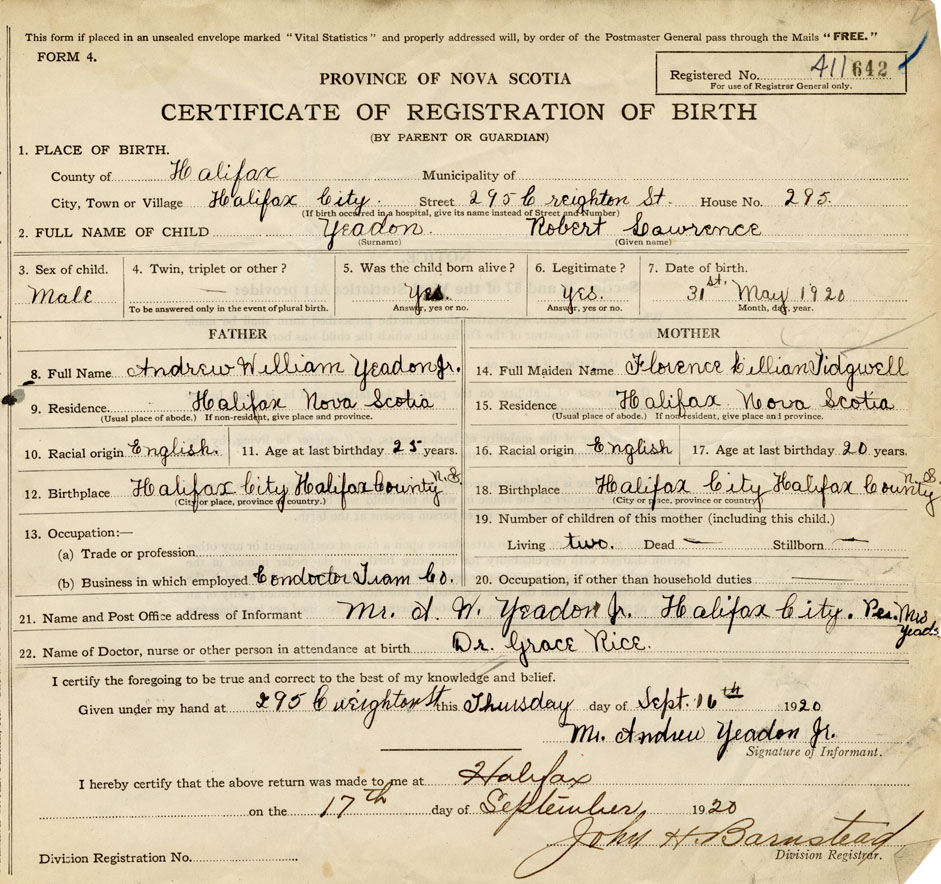 This form if placed in an unsealed envelope marked "Vital Statistics" and properly addressed will, by order of the Postmaster General pass through the Mails "FREE."
FORM 4.
Registered No. 411642
For use of Registrar General only.
PROVINCE OF NOVA SCOTIA
CERTIFICATE OF REGISTRATION OF BIRTH
(BY PARENT OR GUARDIAN)
1. PLACE OF BIRTH.
County of Halifax Municipality of
City, Town or Village Halifax City. Street 295 Creighton St. House No. 295.
(If birth occured in a hospital, give its name instead of Street and Number)
2. FULL NAME OF CHILD Yeadon. Robert Lawrence
(Surname) (Given name)
3. Sex of child. 4. Twin, triplet or other? 5. Was the child born alive? 6. Legitimate? 7. Date of birth.
Male — Yes. Yes. 31st. May 1920
To be answered only in the event of plural birth. Answer, yes or no. Answer, yes or no. Month, day, year.
FATHER MOTHER
8. Full Name Andrew William Yeadon Jr. 14. Full Maiden Name Florence Lillian Tidgwell
9. Residence. Halifax Nova Scotia 15. Residence Halifax Nova Scotia
(Usual place of abode.) If non-resident, give place and province. (Usual place of abode.) If non-resident, give place and province.
10. Racial origin English. 11. Age at last birthday 25 years. 16. Racial origin English 17. Age at last birthday 20 years.
12. Birthplace Halifax City Halifax County N.S. 18. Birthplace Halifax City Halifax County N.S.
(City or place, province or country.) (City or place, province or country)
13. Occupation:— 19. Number of children of this mother (including this child.)
(a) Trade or profession Living two. Dead — Stillborn —
(b) Business in which employed Condoctor Tram Co. 20. Occupation, if other than household duties —
21. Name and Post Office address of Informant Mr. A. W. Yeadon Jr. Halifax City. Per. Mrs
22. Name of Doctor, nurse or other person in attendance at birth Dr. Grace Rice.
I certify the foregoing to be true and correct to the best of my knowledge and belief.
Given under my hand at 295 Creighton St this Thursday day of Sept. 16th 1920
Mr. Andrew Yeadon Jr.
Signature of Informant.
I hereby certify that the above return was made to me at Halifax
on the 17th day of September 1920
John H. Barnstead
Division Registrar.
Division Registration No.